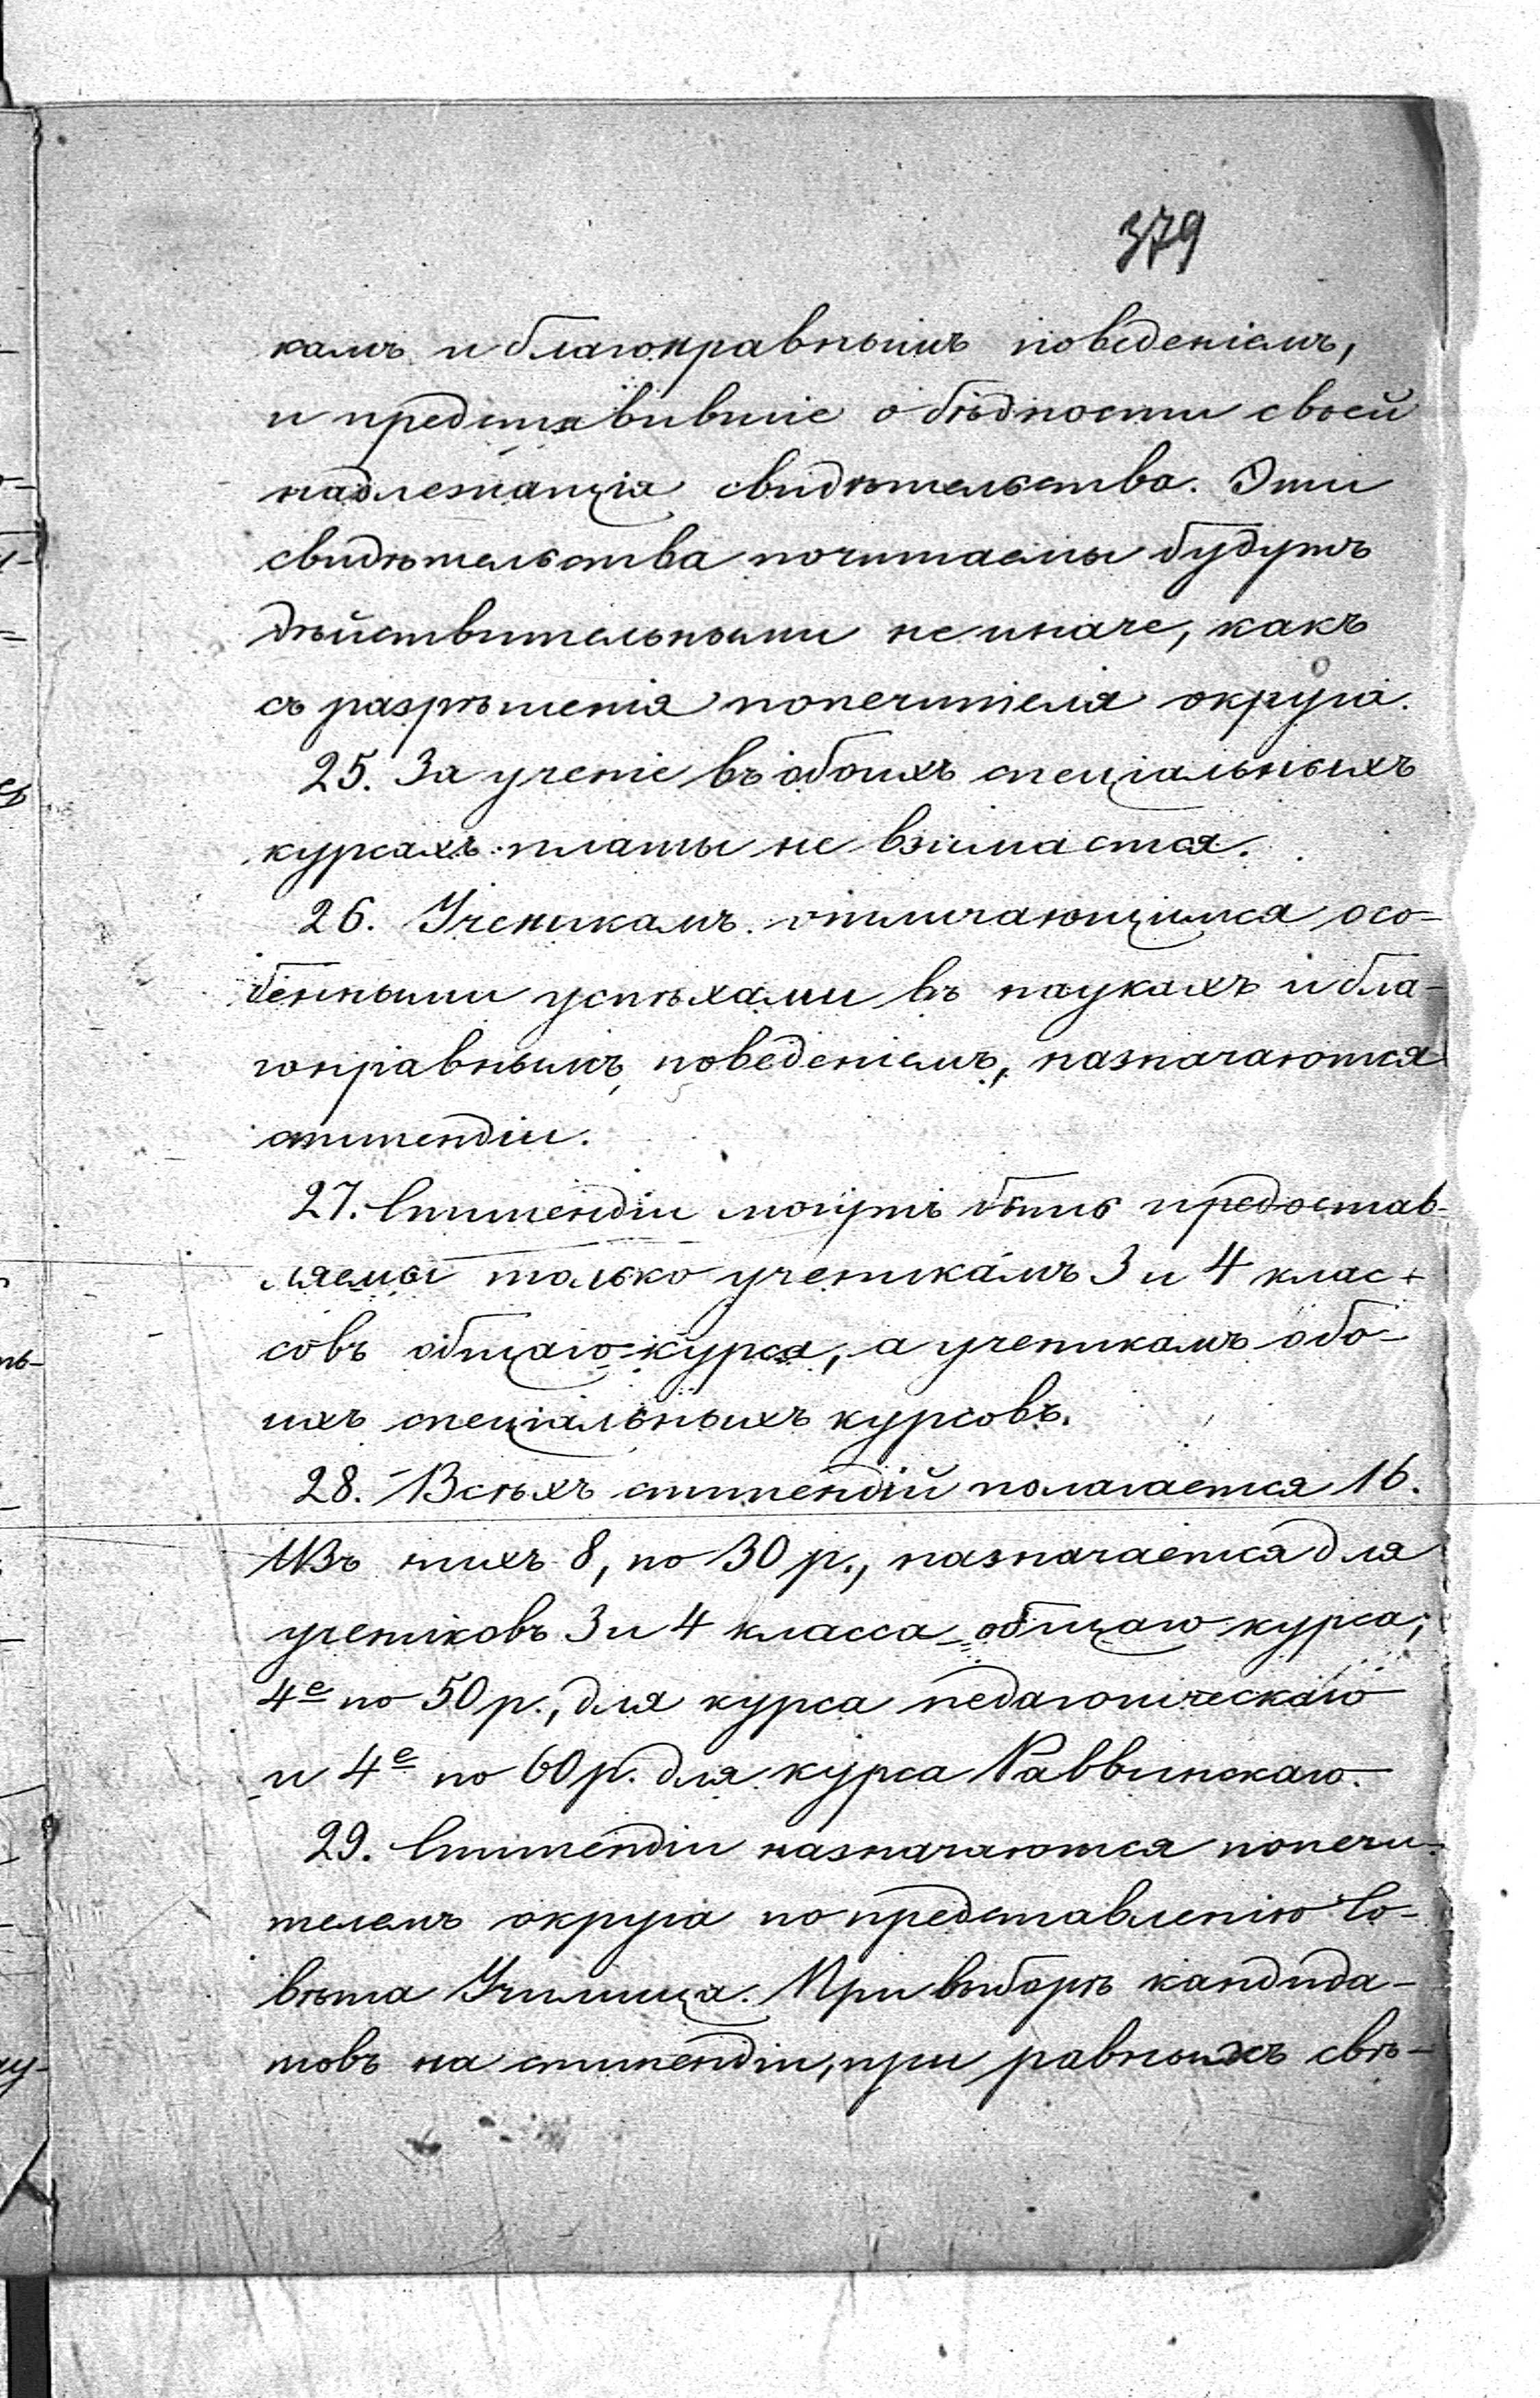 379
камъ и благонравнымъ поведеніемъ,
и представившіе о бѣдности своей
надлежащія свидѣтельства. Эти
свидѣтельства почитаемы будутъ
дѣйствительными не иначе, какъ
съ разрѣшенія попечителя округа.
25. За ученіе въ обоихъ спеціальныхъ
курсахъ платы не взимается.
26. Ученикамъ отличающимся осо-
бенными успѣхами въ наукахъ и бла-
гонравнымъ поведеніемъ, назначаются
стипендіи.
27. Стипендіи могутъ быть предостав-
ляемы только ученикамъ 3 и 4 клас-
совъ общаго курса, а ученикамъ обо-
ихъ спеціальныхъ курсовъ.
28. Всѣхъ стипендій полагается 16.
Изъ нихъ 8, по 30 р., назначается для
учениковъ 3 и 4 класса общаго курса;
4е по 50 р., для курса педагогическаго
и 4е по 60 р. для курса Раввинскаго.
29. Стипендіи назначаются попечи-
телемъ округа по представленію Со-
вѣта Училища. При выборѣ кандида-
товъ на стипендіи, при равныхъ свѣ-